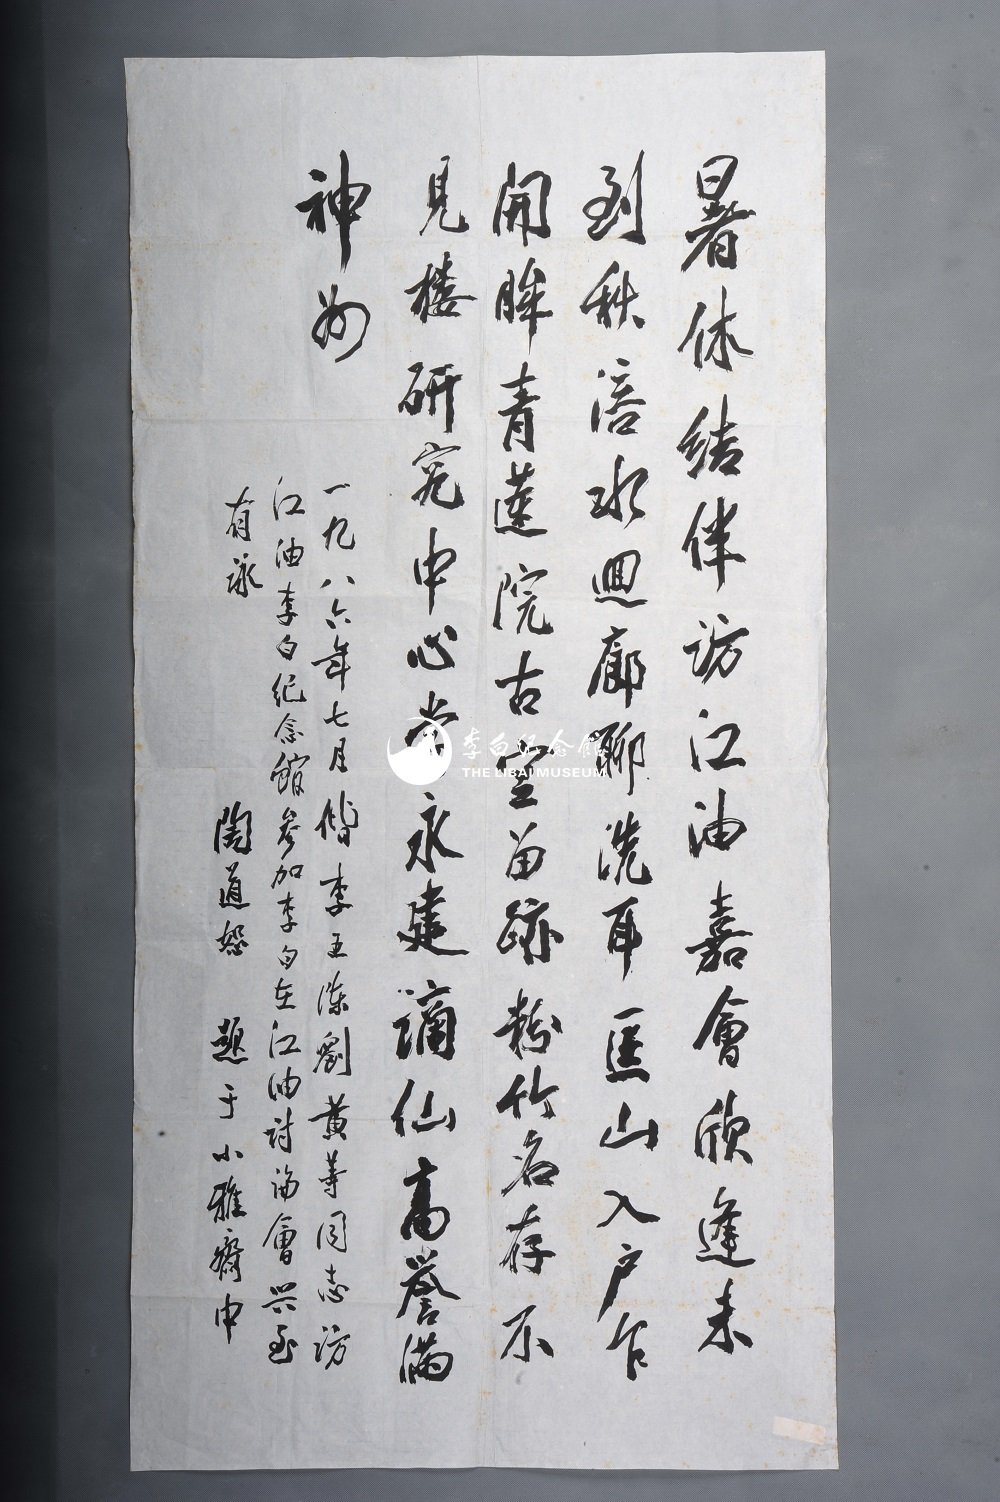 暑休结伴访江油嘉會欣逢未
到秋涪水迴廊聊洗耳匡山入户乍
開眸青蓮院古空留跡粉竹名存不
見楼研究中心常永建謫仙高誉满
神州
一九八六年七月偕李王陈劉黄等同志访
江油李白纪念館参加李白在江油討論會兴至
有詠
陶道恕 题于小雅齋中
李白纪念館
THE LIBAI MUSEUM